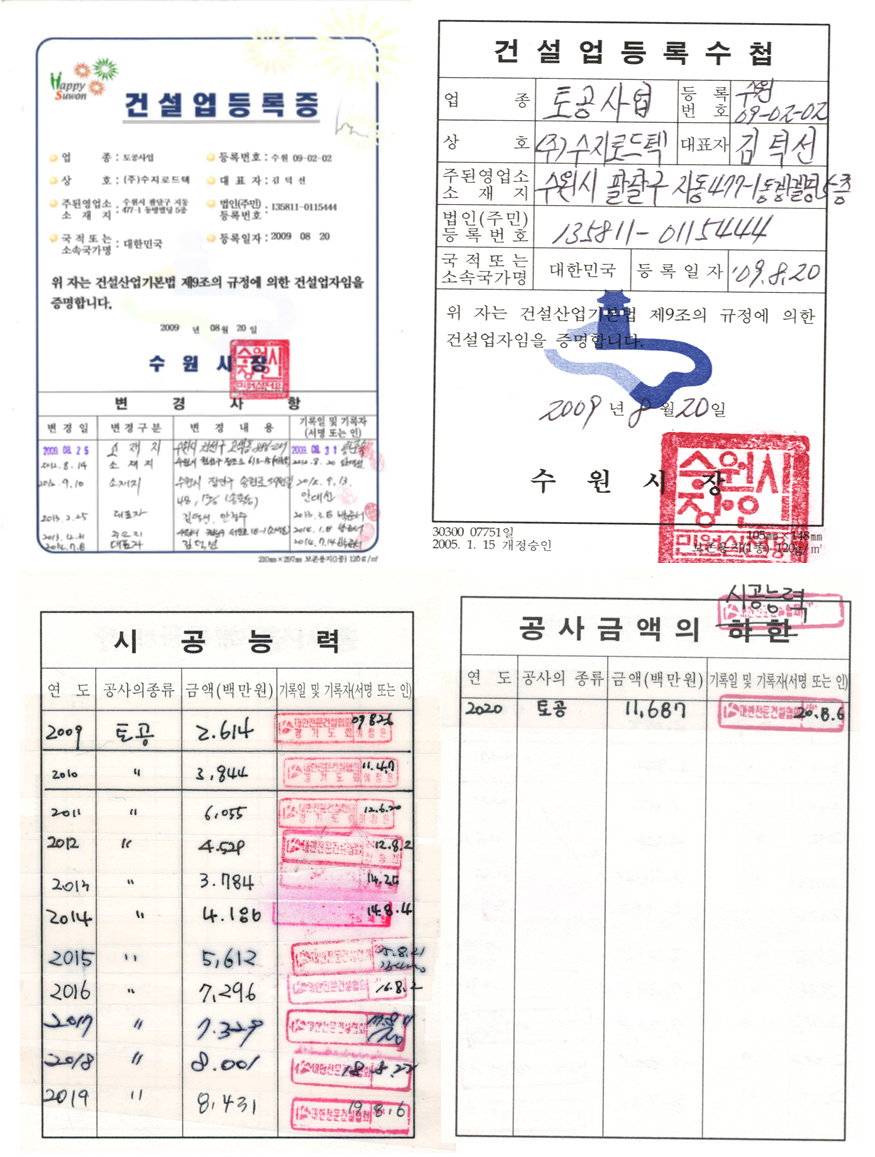 Happy
Suwon
건설업등록증
업 종 : 토공사업
등록번호 : 수원 09-02-02
상 호 : (주)수지로드텍
대 표 자 : 김덕선
주된영업소
소 재 지 : 수원시 팔달구 지동
477-1 동방명덕 5층
법인(주민)
등록번호 : 135811-0115444
국적 또는
소속국가명 : 대한민국
등록일자 : 2009 08 20
위 자는 건설산업기본법 제9조의 규정에 의한 건설업자임을
증명합니다.
2009 년 08월 20일
수원시장
변 경 사 항
변경일 변경구분 변경내용 기록일 및 기록자
(서명 또는 인)
2009. 08. 25 소재지 수원시 권선구 2009. 08. 31
2012. 8. 14 소재지 수원시 권선구 2012. 8. 20
2012. 9. 10 소재지 수원시 장안구 2012. 9. 13.
2013. 2. 25 대표자 김덕선, 2013. 3. 8
2013. 12. 31 주소지 수원시 권선구 2014. 1. 8
2014. 7. 8 대표자 김덕선 2014. 7. 14
210㎜×297㎜ 보존용지(1종) 120g/㎡
건설업등록수첩
업 종 토공사업 등록번호 수원 09-02-02
상 호 (주)수지로드텍 대표자 김덕선
주된영업소
소 재 지 수원시 팔달구 지동 477-1 5층
법인(주민)
등록번호 135811-0115444
국적 또는
소속국가명 대한민국 등록일자 '09. 8. 20
위 자는 건설산업기본법 제9조의 규정에 의한
건설업자임을 증명합니다.
2009 년 8 월 20 일
수원시장
30300 07751일
2005. 1. 15 개정승인
105㎜×148㎜
보존용지(1종) 120g/㎡
시공능력
연 도 공사의종류 금액(백만원) 기록일 및 기록자(서명 또는 인)
2009 토공 2.614 대한전문건설협회 09 8 26
경기도회
2010 〃 3,844 대한전문건설협회 11.4.7
경기도회
2011 〃 6,055 대한전문건설협회 12.6.20
경기도회
2012 〃 4.529 대한전문건설협회 12.8.2
2013 〃 3.784 14.25
2014 〃 4.186 14.8.4
2015 〃 5,612 대한전문건설협회 8.21
2016 〃 7,296 대한전문건설협회 16.8.2
2017 〃 7.329 대한전문건설협회
2018 〃 8.001 대한전문건설협회 18-8-22
2019 〃 8,431 대한전문건설협회 19 8.6
시공능력
공사금액의 하한
연 도 공사의 종류 금액(백만원) 기록일 및 기록자(서명 또는 인)
2020 토공 11,687 대한전문건설협회 20.8.6